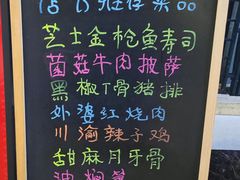 店长推荐菜品
芝士金枪鱼寿司
菌菇牛肉披萨
黑椒丁骨猪排
外婆红烧肉
川渝辣子鸡
甜麻月牙骨
油焖笋